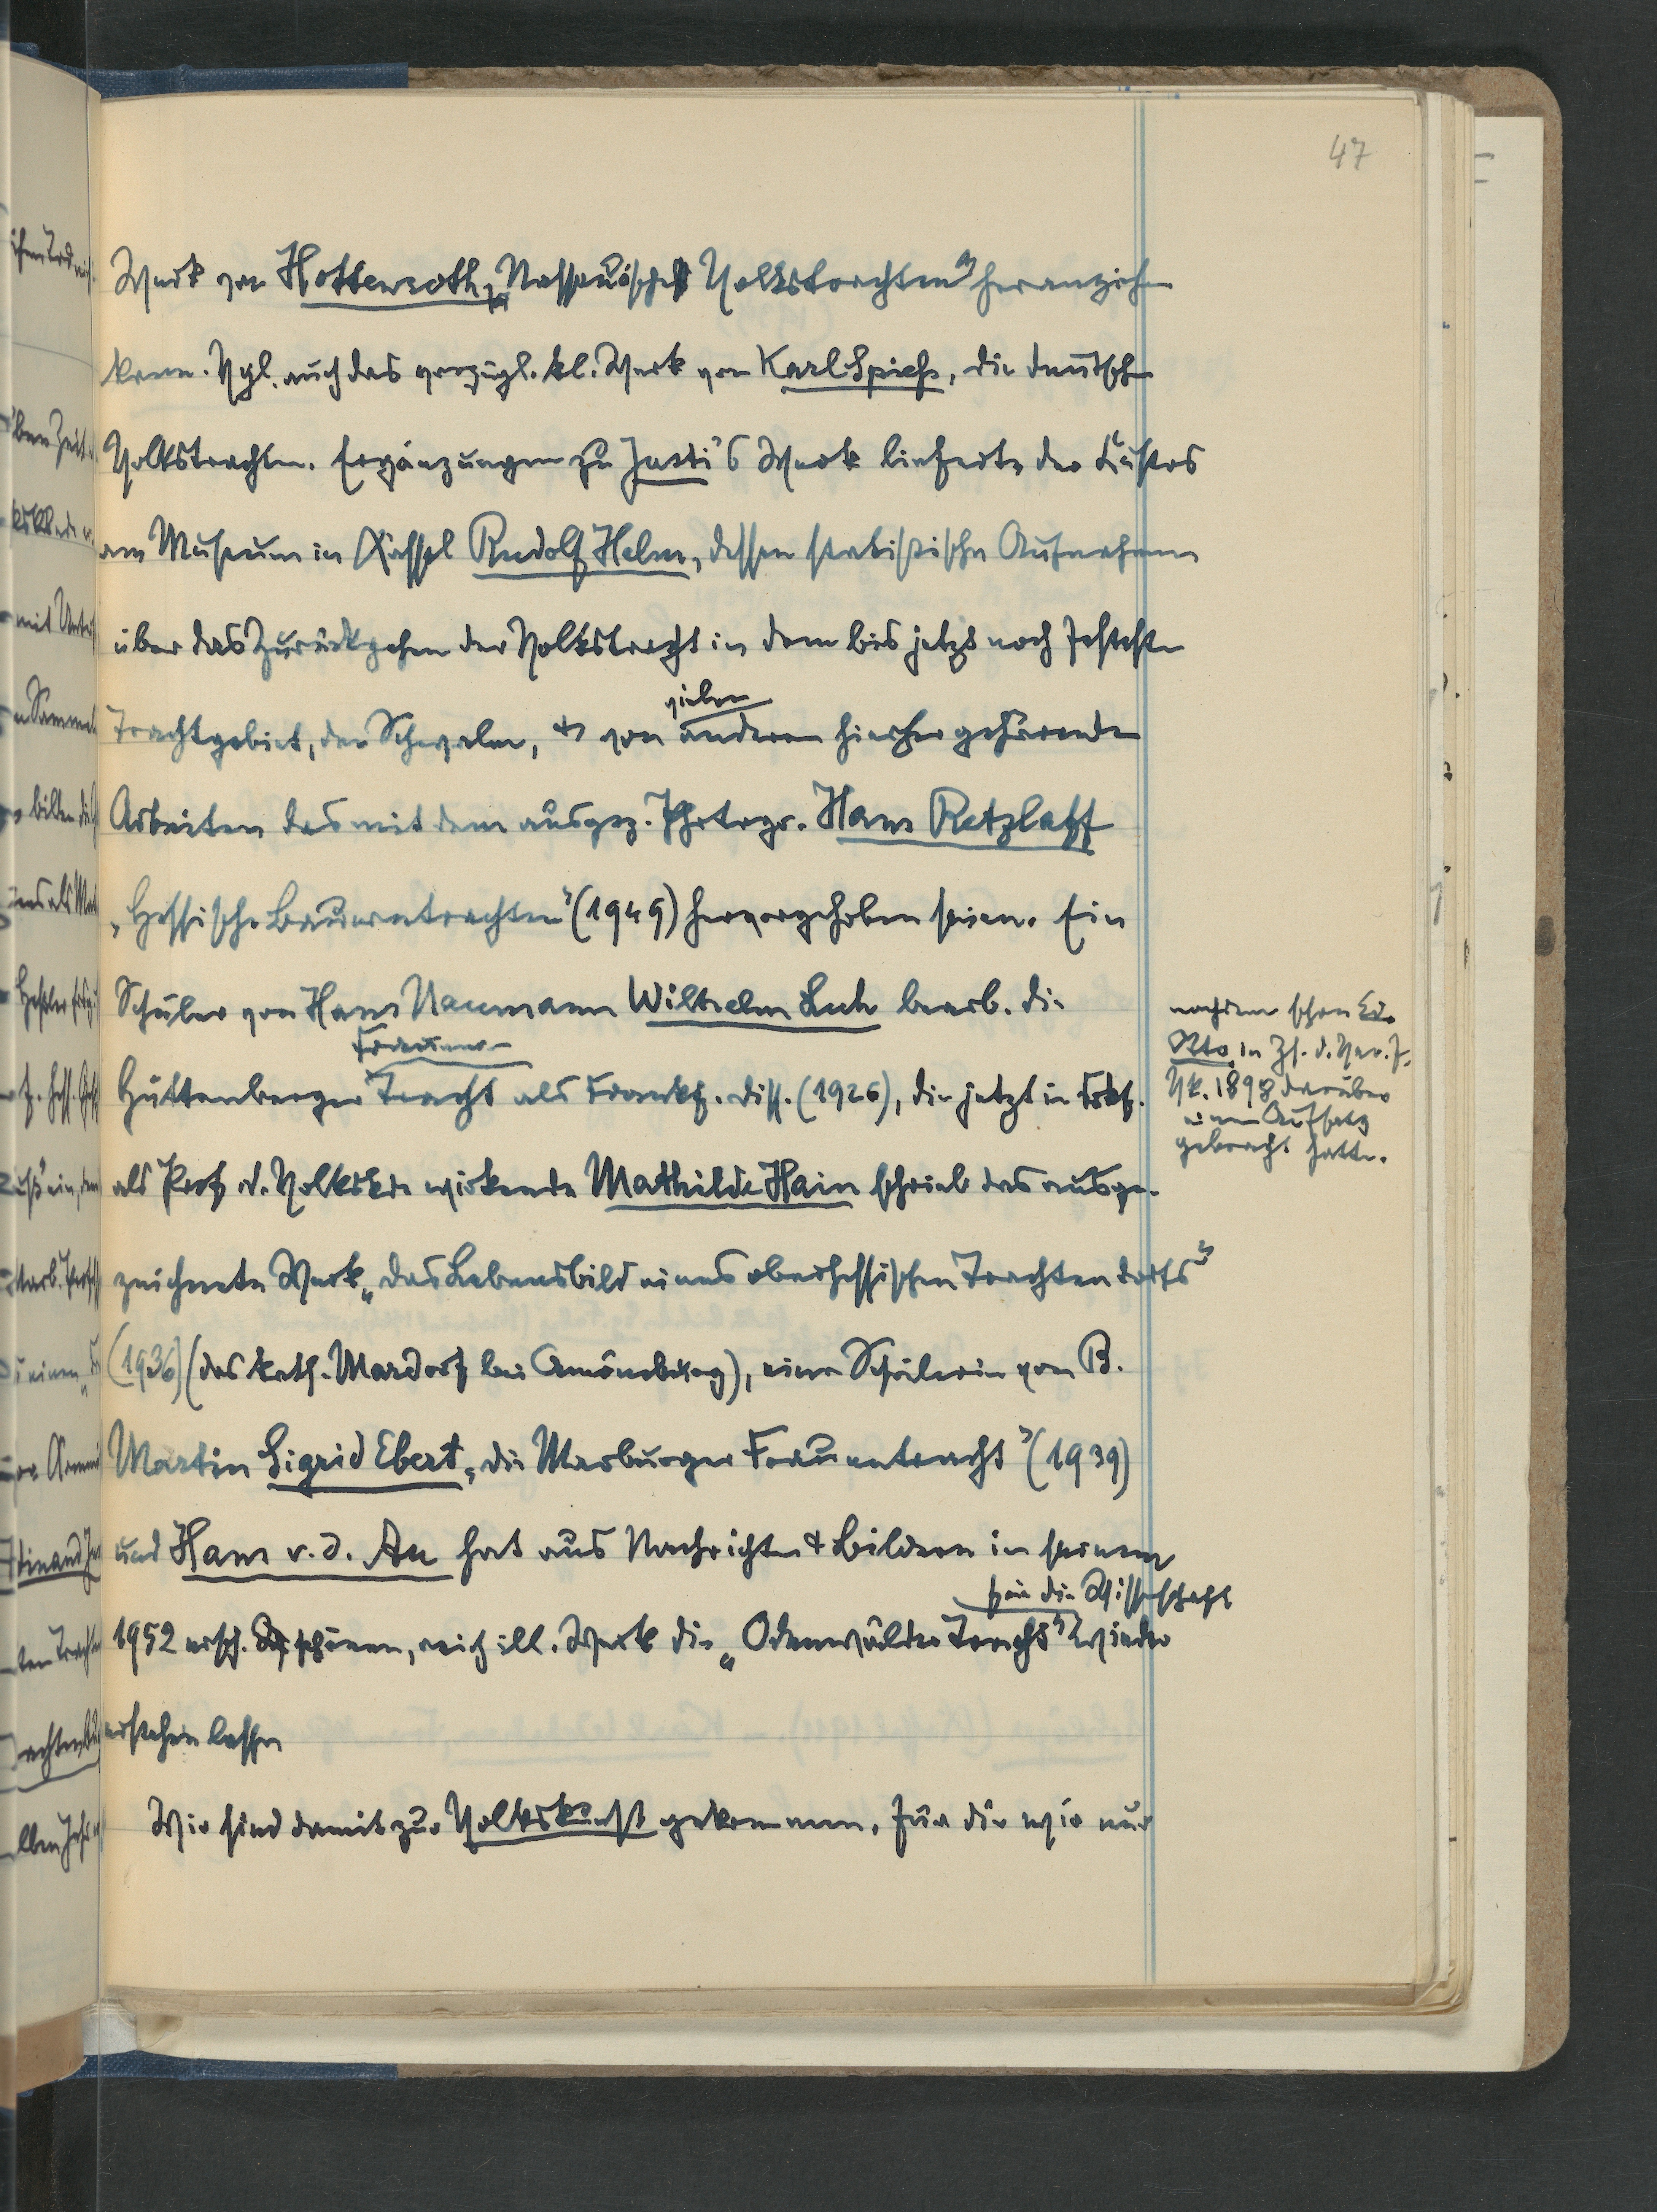 47
Werk von Hottenroth, „Nassauische Volkstrachten“ heranziehen
kann. Vgl. auch das vorzügl. kl. Werk von Karl Spieß, die deutschen
Volkstrachten. Ergänzungen zu Justi's Werk lieferte der Küstos
am Museum in Kassel Rudolf Helm, dessen statistische Aufnahmen
über das Zurückgehen der Volkstracht in dem bis jetzt noch festesten
vielen
Trachtgebiet, der Schwalm, & von anderen hierher gehörenden
Arbeiten das mit dem ausgez. Photogr. Hans Retzlaff
„Hessische Bauerntrachten“ (1949) hervorgehoben seien. Ein
Schüler von Hans Naumann Wilhelm Luh bearb. die
Frauen-
Hüttenberger Tracht als Frankf. Diss. (1926), die jetzt in Frkf.
als Prof. d. Volkskde wirkende Mathilde Hain schrieb das ausge-
zeichnete Werk „das Lebensbild eines oberhessischen Trachtendorfs“
(1936) (das kath. Mardorf bei Amöneburg), eine Schülerin von B.
Martin Sigrid Ebert, „die Marburger Frauentracht“ (1939)
und Hans v. d. Au hat aus Nachrichten & Bildern in seinem
für die Wissenschaft
1952 ersch. schönen, reich ill. Werk die „Odenwälder Tracht“ wieder
erstehen lassen
Wir sind damit zur Volkskunst gekommen, für die wir nur
nachdem schon Ed.
Otto in Zs. d. Ver. f.
Vk. 1898 darüber
einen Aufsatz
gebracht hatte.